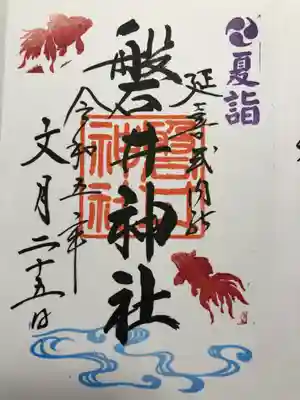 夏詣
延喜式内社
磐井神社
令和五年
文月二十五日
磐井
神社